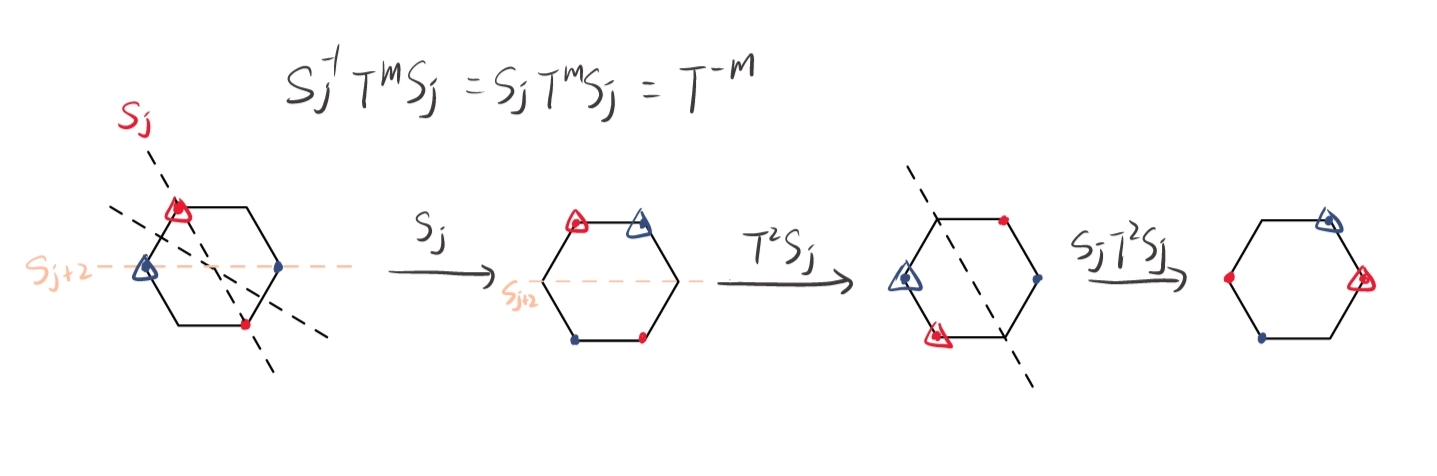 Sj⁻¹ TᵐSj = Sj TᵐSj = T⁻ᵐ
Sj
Sj+2
Sj
Sj+2
T²Sj
SjT²Sj